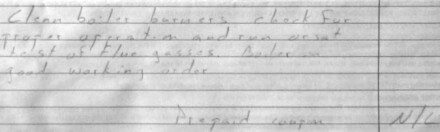 Clean boiler burners check for
proper operation and run orsat
test of flue gasses. Boiler in
good working order
Prepaid coupon N/C